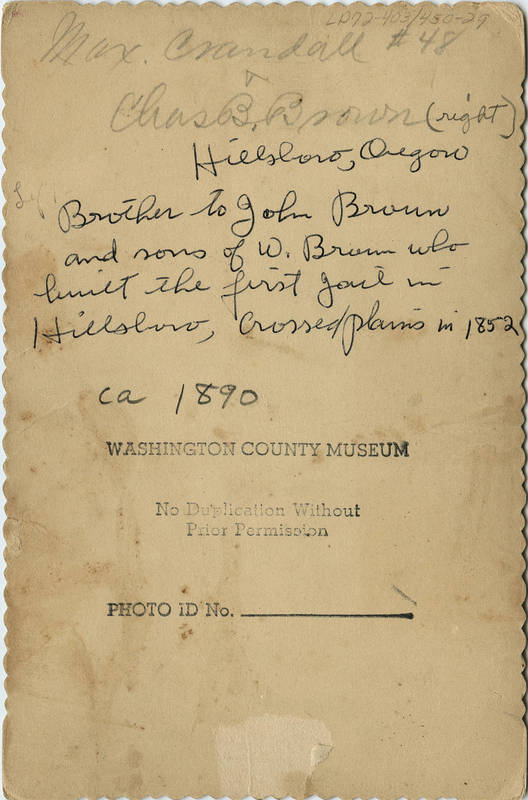 LP72-403/450-29
Max. Crandall #48
Chas B. Brown (right)
Hillsboro, Oregon
Brother to John Brown
and sons of W. Brown who
built the first jail in
Hillsboro, Crossed plains in 1852
ca 1890
WASHINGTON COUNTY MUSEUM
No Duplication Without
Prior Permission
PHOTO ID No.